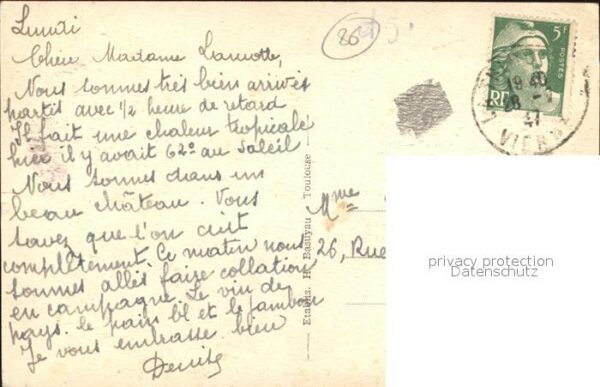 Lundi
Chère Madame Lamotte,
Nous sommes très bien arrivés
partis avec 1/2 heure de retard
Il fait une chaleur tropicale
hier il y avait 62° au soleil
Nous sommes dans un
beau château. Vous
savez que l'on cuit
complètement. Ce matin nous
sommes allés faire collation
en campagne. Le vin de
pays. le pain bl et le jambon
Je vous embrasse bien
Denise
26
Etablis. H. Basuyau - Toulouse
5F
POSTES
RF
19 40
47
VIENNE
Mme
26, Rue
privacy protection
Datenschutz